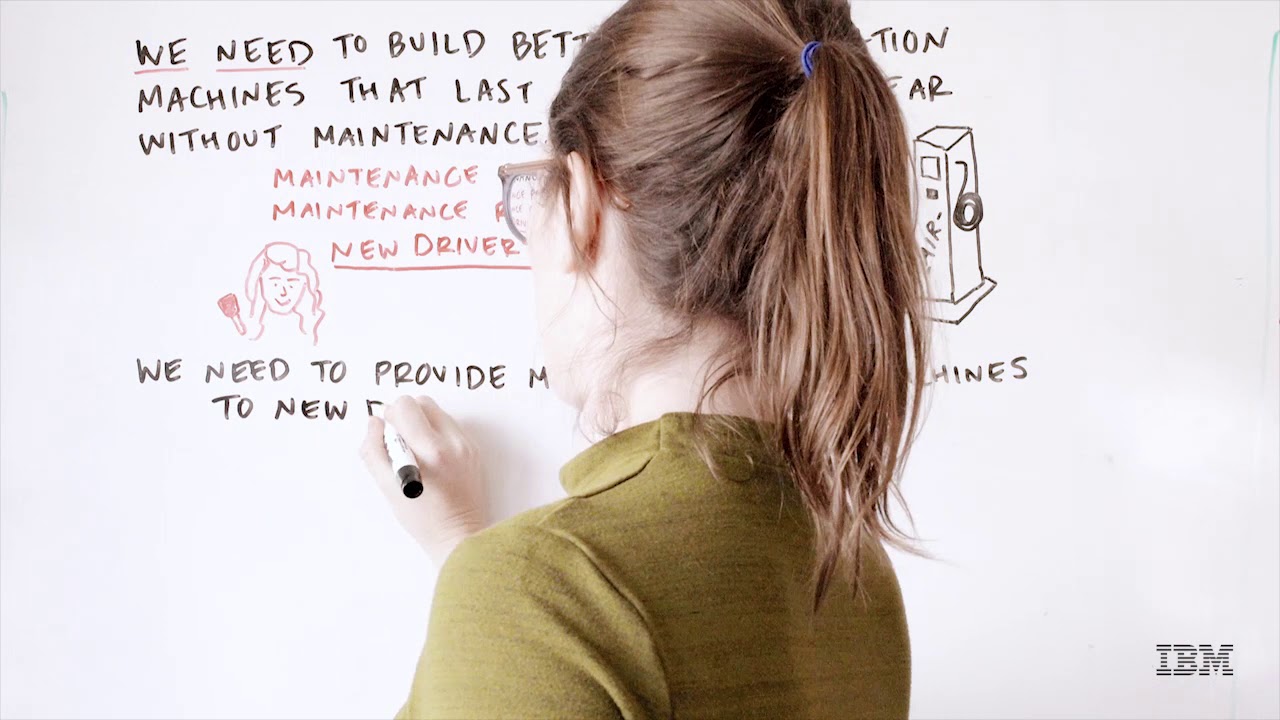 WE NEED TO BUILD
MACHINES THAT LAST
WITHOUT MAINTENANCE.
MAINTENANCE
MAINTENANCE
NEW DRIVER
WE NEED TO PROVIDE
TO NEW
IBM